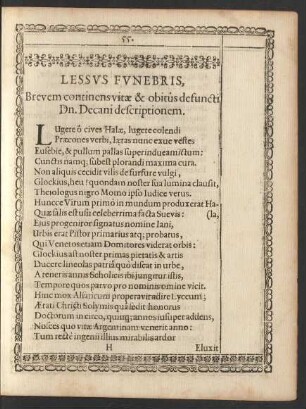 55.
LESSVS FVNEBRIS,
Brevem continens vitæ & obitûs defuncti
Dn. Decani descriptionem.
LUgere ô cives Halæ, lugere colendi
Præcones verbi, lætas nunc exue vestes
Eusebie, & pullum pallas superindue amictum:
Cunctis namq; subest plorandi maxima cura.
Non aliquis cecidit vilis de furfure vulgi,
Glockius, heu! quondam noster sua lumina clausit,
Theiologus nigro Momo ipso Iudice verus.
Huncce Virum primò in mundum produxerat Ha-
Quæ salis est usu celeberrima facta Suevis: (la,
Eius progenitor signatus nomine Iani,
Urbis erat Pistor primarius atq; probatus,
Qui Venetos etiam Domitores viderat orbis:
Glockius ast noster primas pietatis & artis
Ducere lineolas patriâ quò discat in urbe,
A teneris annis Scholicis ibi jungitur istis,
Tempore quos parvo pro nominis omine vicit.
Hinc mox Alsaticum properavit adire Lyceum;
Ærati Christi Solymis quâ sedit honorus
Doctorum in circo, quinq; annes insuper addens,
Nosces quo vitæ Argentinam venerit anno:
Tum rectè ingenii illius mirabilis ardor
H Eluxit